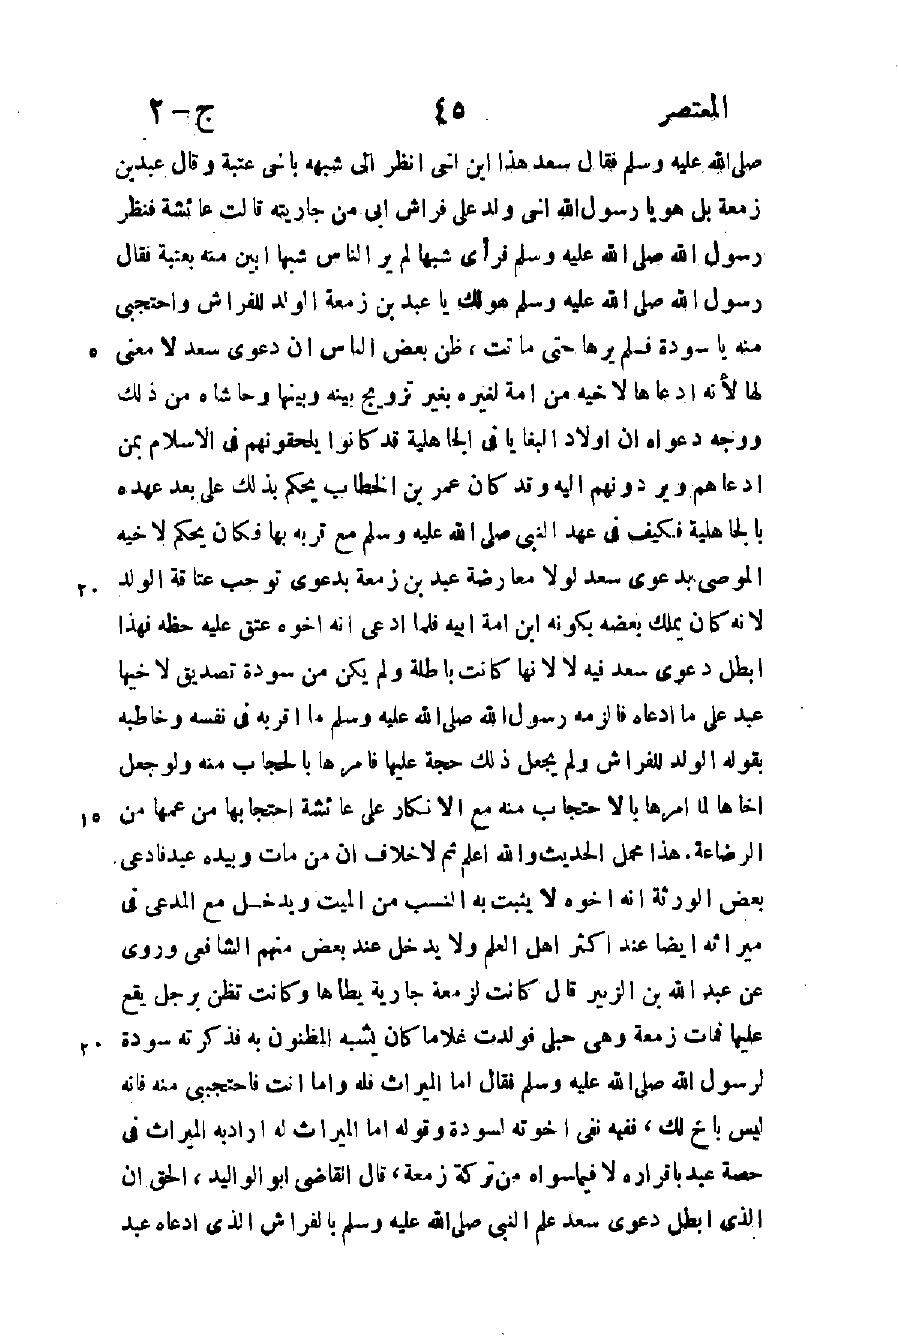 المعتصر ٤٥ ج-٢
صلى الله عليه وسلم فقال سعد هذا ابن اخى انظر الى شبهه باخى عتبة وقال عبدبن
زمعة بل هويا رسول الله اخى ولد على فراش ابى من جاريته قالت عائشة فنظر
رسول الله صلى الله عليه وسلم فرأى شبها لم ير الناس شبها ابين منه بعتبة فقال
رسول الله صلى الله عليه وسلم هولك يا عبد بن زمعة الولد للفراش واحتجبى
منه يا سودة فلم يرها حتى ماتت ، ظن بعض الناس ان دعوى سعد لا معنى ٥
لها لأنه ادعاها لاخيه من امة لغيره بغير تزويج بينه وبينها وحاشاه من ذلك
ووجه دعواه ان اولاد البغايا فى الجاهلية قد كانوا يلحقونهم فى الاسلام بمن
ادعاهم ويردونهم اليه وقد كان عمر بن الخطاب يحكم بذلك على بعد عهده
بالجاهلية فكيف فى عهد النبى صلى الله عليه وسلم مع قربه بها فكان يحكم لاخيه
الموصى بدعوى سعد لولا معارضة عبد بن زمعة بدعوى توجب عتاقة الولد ٢٠
لانه كان يملك بعضه بكونه ابن امة ابيه فلما ادعى انه اخوه عتق عليه حظه فهذا
ابطل دعوى سعد فيه لا لانها كانت باطلة ولم يكن من سودة تصديق لاخيها
عبد على ما ادعاه فالزمه رسول الله صلى الله عليه وسلم ما اقربه فى نفسه وخاطبه
بقوله الولد للفراش ولم يجعل ذلك حجة عليها فامرها بالحجاب منه ولوجعل
اخاها لما امرها بالاحتجاب منه مع الانكار على عائشة احتجابها من عمها من ١٥
الرضاعة. هذا محمل الحديث والله اعلم ثم لاخلاف ان من مات وبيده عبدفادعى
بعض الورثة انه اخوه لا يثبت به النسب من الميت ويدخل مع المدعى فى
ميراثه ايضا عند اكثر اهل العلم ولا يدخل عند بعض منهم الشافعى وروى
عن عبد الله بن الزبير قال كانت لزمعة جارية يطاها وكانت تظن برجل يقع
عليها فمات زمعة وهى حبلى فولدت غلاما كان يشبه المظنون به فذكرته سودة ٢٠
لرسول الله صلى الله عليه وسلم فقال اما الميراث فله واما انت فاحتجبى منه فانه
ليس باخ لك ، ففيه نفى اخوته لسودة وقوله اما الميراث له ارادبه الميراث فى
حصة عبد باقراره لا فيما سواه من تركة زمعة ، قال القاضى ابو الوليد ، الحق ان
الذى ابطل دعوى سعد علم النبى صلى الله عليه وسلم بالفراش الذى ادعاه عبد